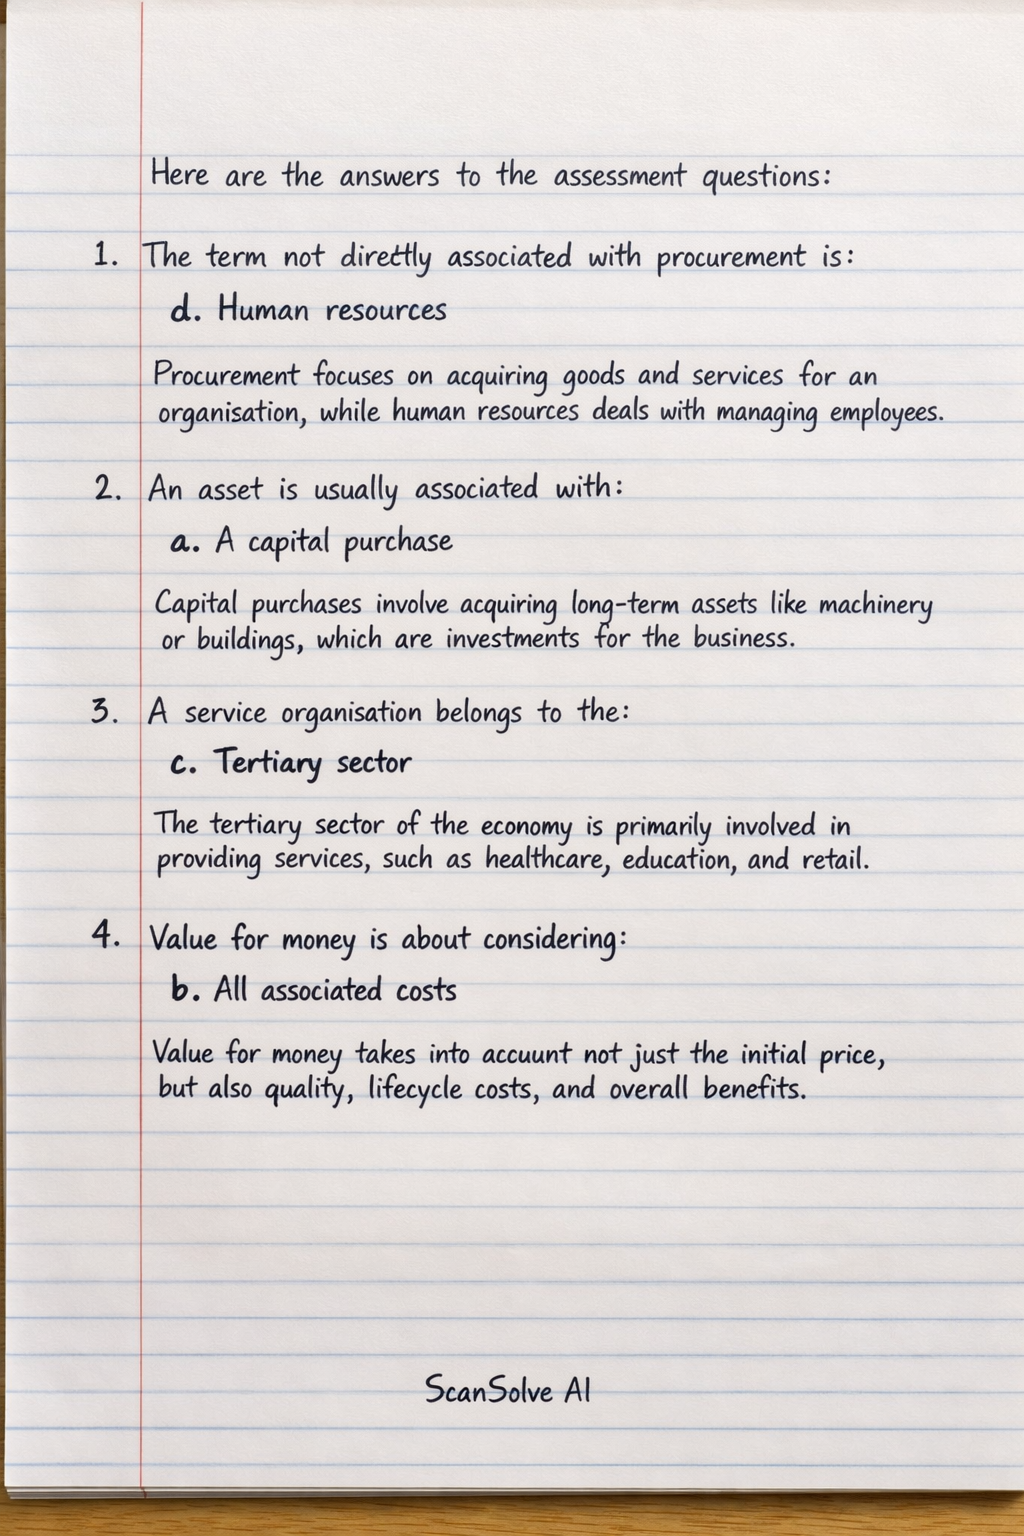 Here are the answers to the assessment questions:
1. The term not directly associated with procurement is:
d. Human resources
Procurement focuses on acquiring goods and services for an
organisation, while human resources deals with managing employees.
2. An asset is usually associated with:
a. A capital purchase
Capital purchases involve acquiring long-term assets like machinery
or buildings, which are investments for the business.
3. A service organisation belongs to the:
c. Tertiary sector
The tertiary sector of the economy is primarily involved in
providing services, such as healthcare, education, and retail.
4. Value for money is about considering:
b. All associated costs
Value for money takes into accuunt not just the initial price,
but also quality, lifecycle costs, and overall benefits.
ScanSolve AI